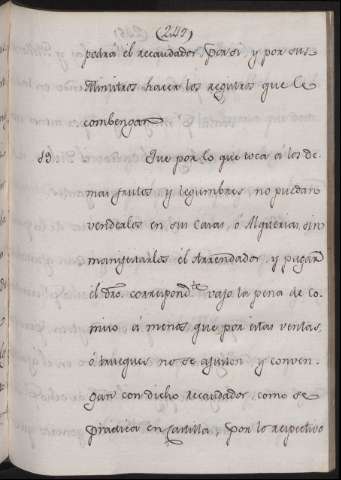 (245)
podrá él recaudador, por si y por sus
Ministros hacer los registros que le
combengan
89 Que por lo que toca á los de-
mas frutos y legumbres no puedan
venderlos en sus Casas, ó Alquerias sin
manifestarlos él Arrendador, y pagar
él dro. correspondte. vajo la pena de Co-
miso á menos que por estas ventas,
ó trueques no se ajusten y conven-
gan con dicho recaudador, como se
practica en Castilla, por lo respectivo